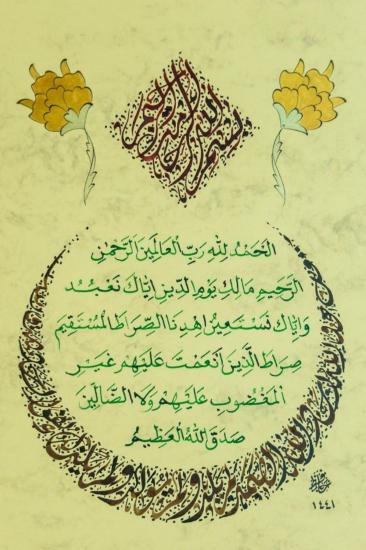 بسم الله الرحمن الرحيم
الحَمْدُ لِلّهِ رَبِّ العَالَمِينَ الرَّحْمنِ
الرَّحِيمِ مَالِكِ يَوْمِ الدِّينِ إِيَّاكَ نَعْبُدُ
وَإِيَّاكَ نَسْتَعِينُ اهْدِنَا الصِّرَاطَ المُسْتَقِيمَ
صِرَاطَ الَّذِينَ أَنْعَمْتَ عَلَيْهِمْ غَيْرِ
المَغْضُوبِ عَلَيْهِمْ وَلَا الضَّالِّينَ
صَدَقَ اللهُ العَظِيمُ
١٤٤١